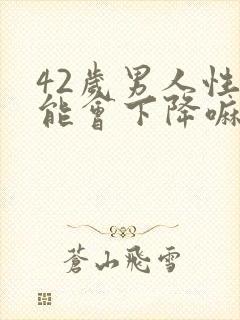 42歲男人性
能會下降嘛
蒼山飛雪